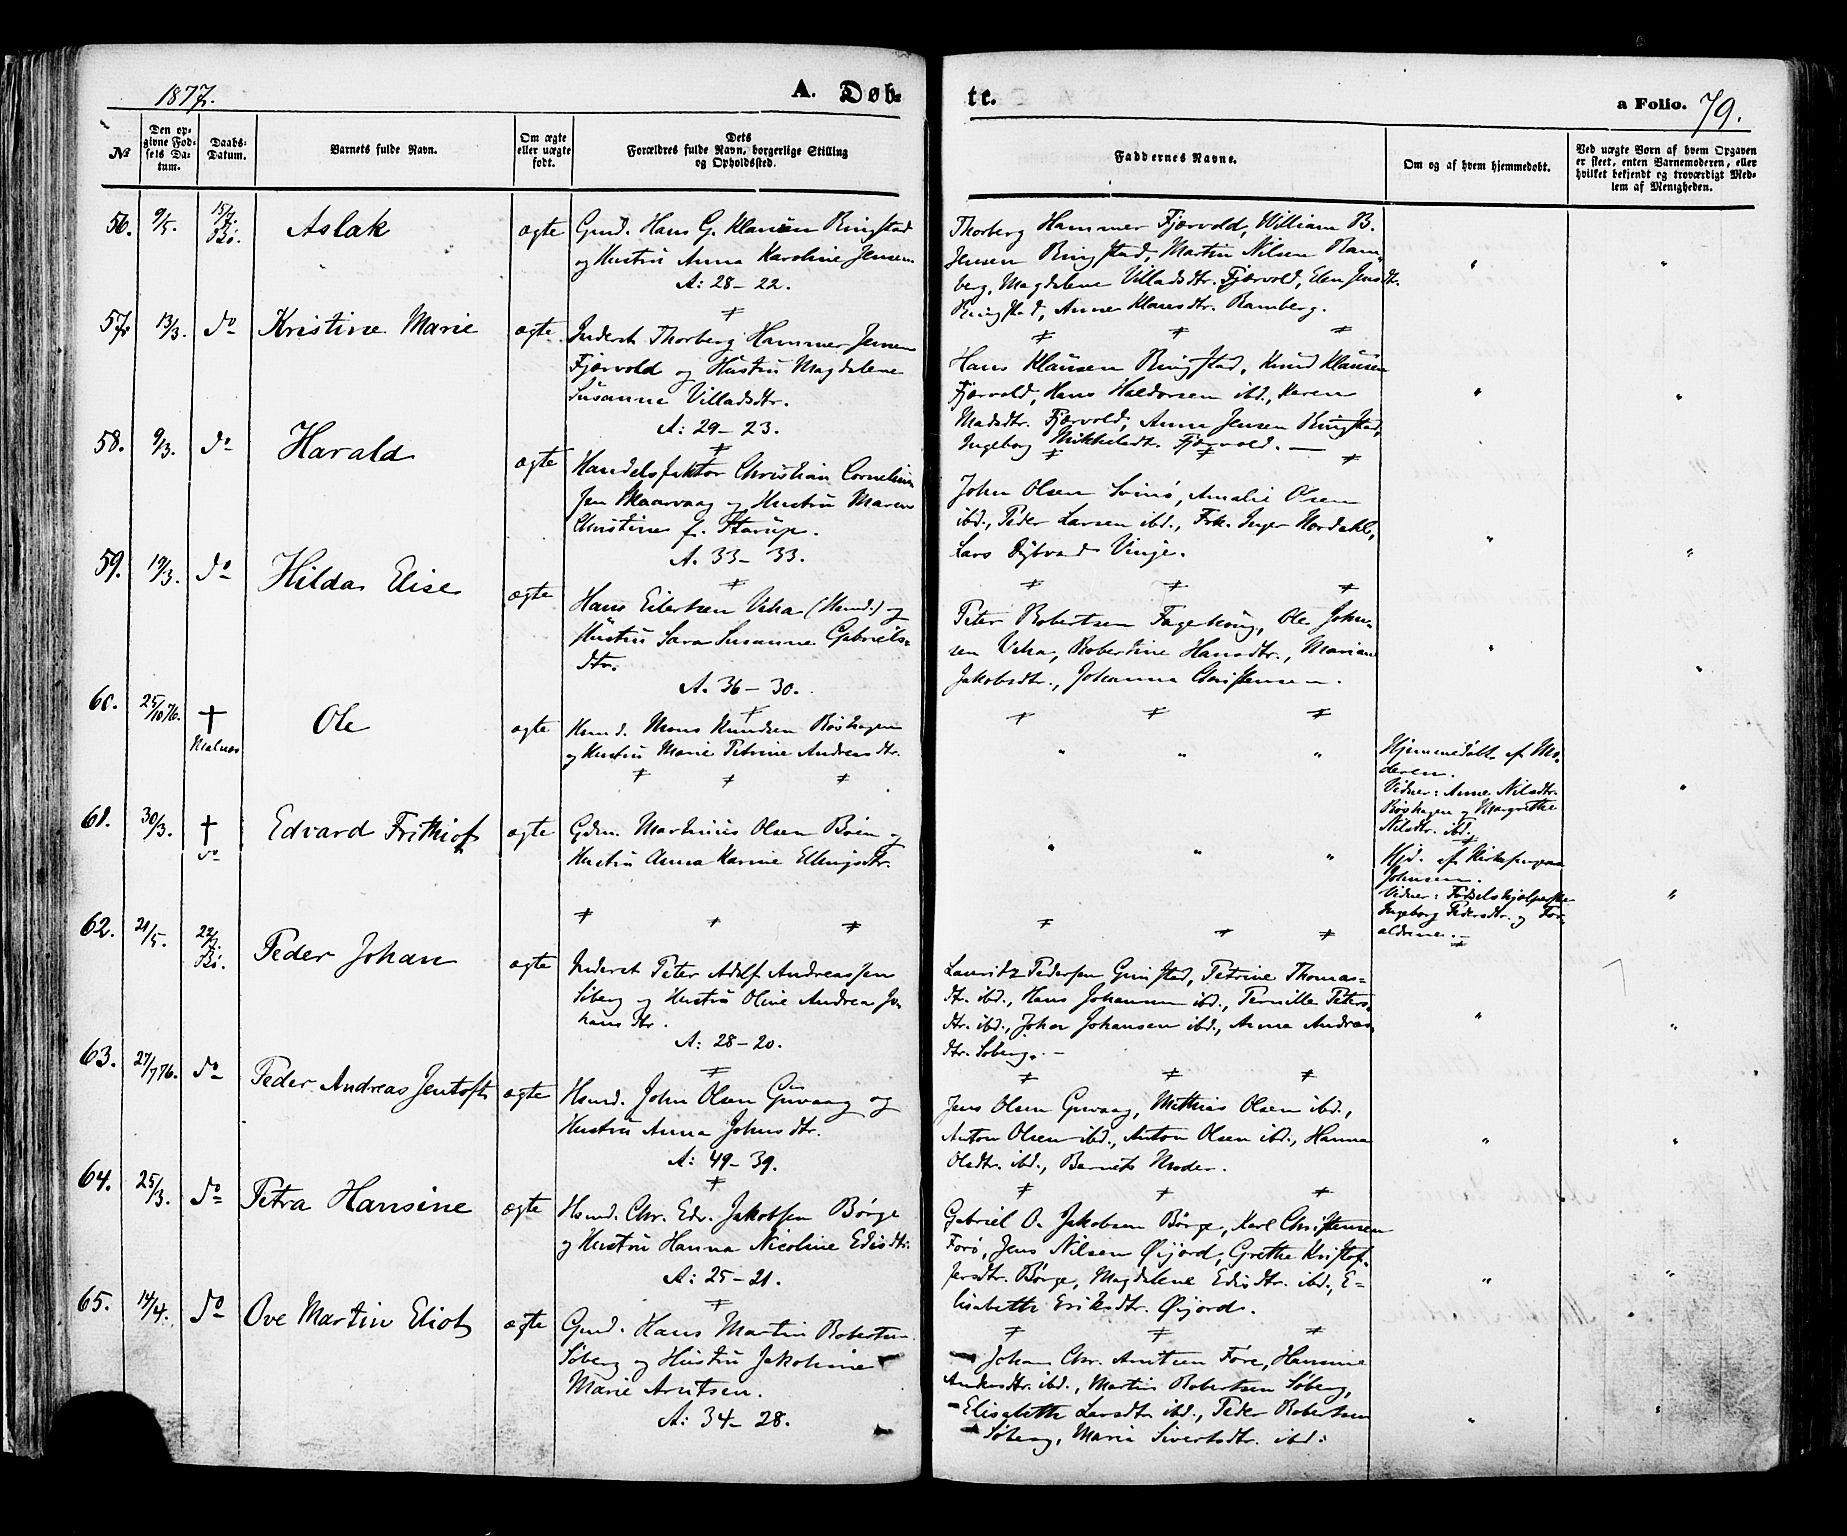 1877.
A. Døb-
te.
a Folio. 79.
No
Den op-
givne Fød-
sels Da-
tum.
Daabs-
Datum.
Barnets fulde Navn.
Om ægte
eller uægte
født.
Dets
Forældres fulde Navn, borgerlige Stilling
og Opholdssted.
Faddernes Navne.
Om og af hvem hjemmedøbt.
Ved uægte Børn af hvem Opgaven
er skeet, enten Barnemoderen, eller
hvilket bekjendt og troværdigt Med-
lem af Menigheden.
56. 9/5. 15/7. Bø. Aslak ægte
Gmd. Hans G. Klausen Ringstad
og Hustru Anna Karoline Jensen.
A: 28-22.
Thorberg Hammer Fjærvold, William B.
Jensen Ringstad, Martin Nilsen Ram-
berg, Magdalene Villadsdtr. Fjærvold, Elen Jensdtr.
Ringstad, Anne Klausdtr. Ramberg.
57. 13/3. do Kristine Marie ægte
Inderst Thorberg Hammer Jensen
Fjærvold og Hustru Magdalene
Susanna Villadsdtr.
A: 29-23.
Hans Klausen Ringstad, Knud Klausen
Fjærvold, Hans Haldorsen ibd., Karen
Madsdtr. Fjærvold, Anna Jensen Ringstad,
Ingeborg Mikkelsdtr. Fjærvold. —
58. 9/3. do Harald ægte
Handelsfaktor Christian Corneliu-
sen Skaarvaag og Hustru Maren
Christine f. Starup.
A. 33-33.
John Olsen Svinø, Amalie Olsen
ibd., Peder Larsen ibd., Frk. Inger Nordahl,
Lars Dybvad Vinje.
59. 19/3. do Hilda Elise ægte
Hans Eilertsen Veha (Hsmd.) og
Hustru Sara Susanne Gabriels-
dtr.
A. 36-30.
Peter Robertsen Fageskoug, Ole John-
sen Veha, Robertine Hansdtr., Mariane
Jakobsdtr., Johanna Christensen.
60. 25/10 76. † Malnes Ole ægte
Hsmd. Mons Knudsen Røshagen
og Hustru Marie Petrine Andreasdtr.
Hjemmedøbt af Mo-
deren.
Vidner: Anne Nilsdtr.
Røshagen og Margrethe
Nilsdtr. ibd.
61. 30/3. † do Edvard Frithiof ægte
Gdm. Markusus Olsen Bøen og
Hustru Anna Karine Ellingsdtr.
Hjd. af Kirkesanger
Johnsen.
Vidner: Fødselshjælperske
Ingeborg Pedersdtr. og For-
ældrene. —
62. 21/5. 22/7. Bø. Peder Johan ægte
Inderst Peter Adolf Andreassen
Søberg og Hustru Oline Andrea Jo-
hansdtr.
A: 28-20.
Lauritz Pedersen Grimstad, Petrine Thomas-
dtr. ibd., Hans Johansen ibd., Pernille Peters-
dtr. ibd., Johan Johansen ibd., Anna Andreas-
dtr. Søberg. —
63. 27/7 76. do Peder Andreas Jentoft ægte
Hsmd. John Olsen Guvaag og
Hustru Anna Johnsdtr.
A: 49-39.
Jens Olsen Guvaag, Mathias Olsen ibd.,
Anton Olsen ibd., Anton Olsen ibd., Hanna
Olsdtr. ibd., Barnets Moder.
64. 25/3. do Petra Hansine ægte
Hsmd. Chr. Edv. Jakobsen Børge
og Hustru Hanna Nicoline Edisdtr.
A: 25-21.
Gabriel O. Jakobsen Børge, Karl Christensen
Forø, Jens Nilsen Øijord, Grethe Kristof-
fersdtr. Børge, Magdalene Edisdtr. ibd., E-
lisabeth Eriksdtr. Øijord.
65. 14/4. do Ove Martin Eliot ægte
Gmd. Hans Martin Robertsen
Søberg og Hustru Jakobine
Marie Arntsen.
A: 34-28.
Johan Chr. Arntsen Føre, Hansine
Andersdtr. ibd., Martin Robertsen Søberg,
Elisabeth Larsdtr. ibd., Peder Robertsen
Søberg, Maria Sivertsdtr. ibd: